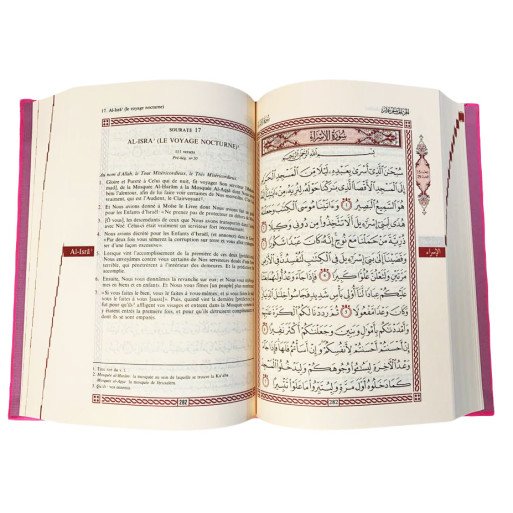 17. Al-Isrâ' (le voyage nocturne)
SOURATE 17
AL-ISRA' (LE VOYAGE NOCTURNE)¹
111 versets
Pré-Hég. n° 50
Au nom d'Allah, le Tout Miséricordieux, le Très Miséricordieux.
1. Gloire et Pureté à Celui qui de nuit, fit voyager Son serviteur
de la Mosquée Al-Harâm à la Mosquée Al-Aqsâ dont
l'alentour, afin de lui faire voir certaines de Nos
vraiment, qui est l'Audient, le Clairvoyant.
2. Et Nous avions donné à Moïse le Livre dont Nous avions fait
pour les Enfants d'Israël: «Ne prenez pas de protecteur en dehors de
3. [Ô vous], les descendants de ceux que Nous avons transportés dans
avec Noé. Celui-ci était vraiment un serviteur fort reconnaissant.
4. Nous avions décrété pour les Enfants d'Israël,
«Par deux fois vous sèmerez la corruption sur terre et vous
d'une façon excessive».
Al-Isrâ'
5. Lorsque vint l'accomplissement de la première de ces deux
Nous envoyâmes contre vous certains de Nos serviteurs doués d'une
terrible, qui pénétrèrent à l'intérieur des demeures. Et la
accomplie.
6. Ensuite, Nous vous donnâmes la revanche sur eux; et Nous vous
mes en biens et en enfants. Et Nous vous fîmes [un peuple] plus
7. «Si vous faites le bien, vous le faites à vous-mêmes; et si vous
vous le faites à vous [aussi]». Puis, quand vint la dernière
pour qu'ils affligent vos visages et entrent dans la Mosquée
y étaient entrés la première fois, et pour qu'ils détruisent
dont ils se sont emparés.
2. Mosquée al-Harâm: la mosquée au sein de laquelle se trouve la Ka'aba
Mosquée al-Aqsa: la mosquée de Jérusalem.
282
سُورَةُ الإِسْرَاءِ
بِسْمِ اللَّهِ الرَّحْمَٰنِ الرَّحِيمِ
سُبْحَٰنَ ٱلَّذِىٓ أَسْرَىٰ بِعَبْدِهِۦ لَيْلًا مِّنَ ٱلْمَسْجِدِ ٱلْحَرَامِ
إِلَى ٱلْمَسْجِدِ ٱلْأَقْصَا ٱلَّذِى بَٰرَكْنَا حَوْلَهُۥ لِنُرِيَهُۥ مِنْ ءَايَٰتِنَآ إِنَّهُۥ
هُوَ ٱلسَّمِيعُ ٱلْبَصِيرُ ١ وَءَاتَيْنَا مُوسَى ٱلْكِتَٰبَ وَجَعَلْنَٰهُ
هُدًى لِّبَنِىٓ إِسْرَٰٓءِيلَ أَلَّا تَتَّخِذُوا۟ مِن دُونِى وَكِيلًا ٢
ذُرِّيَّةَ مَنْ حَمَلْنَا مَعَ نُوحٍ إِنَّهُۥ كَانَ عَبْدًا شَكُورًا ٣
وَقَضَيْنَآ إِلَىٰ بَنِىٓ إِسْرَٰٓءِيلَ فِى ٱلْكِتَٰبِ لَتُفْسِدُنَّ فِى ٱلْأَرْضِ
مَرَّتَيْنِ وَلَتَعْلُنَّ عُلُوًّا كَبِيرًا ٤ فَإِذَا جَآءَ وَعْدُ أُولَىٰهُمَا بَعَثْنَا
عَلَيْكُمْ عِبَادًا لَّنَآ أُو۟لِى بَأْسٍ شَدِيدٍ فَجَاسُوا۟ خِلَٰلَ ٱلدِّيَارِ
وَكَانَ وَعْدًا مَّفْعُولًا ٥ ثُمَّ رَدَدْنَا لَكُمُ ٱلْكَرَّةَ عَلَيْهِمْ
وَأَمْدَدْنَٰكُم بِأَمْوَٰلٍ وَبَنِينَ وَجَعَلْنَٰكُمْ أَكْثَرَ نَفِيرًا ٦
إِنْ أَحْسَنتُمْ أَحْسَنتُمْ لِأَنفُسِكُمْ وَإِنْ أَسَأْتُمْ فَلَهَا فَإِذَا جَآءَ
وَعْدُ ٱلْءَاخِرَةِ لِيَسُۥٓـُٔوا۟ وُجُوهَكُمْ وَلِيَدْخُلُوا۟ ٱلْمَسْجِدَ
كَمَا دَخَلُوهُ أَوَّلَ مَرَّةٍ وَلِيُتَبِّرُوا۟ مَا عَلَوْا۟ تَتْبِيرًا ٧
الإسراء
282